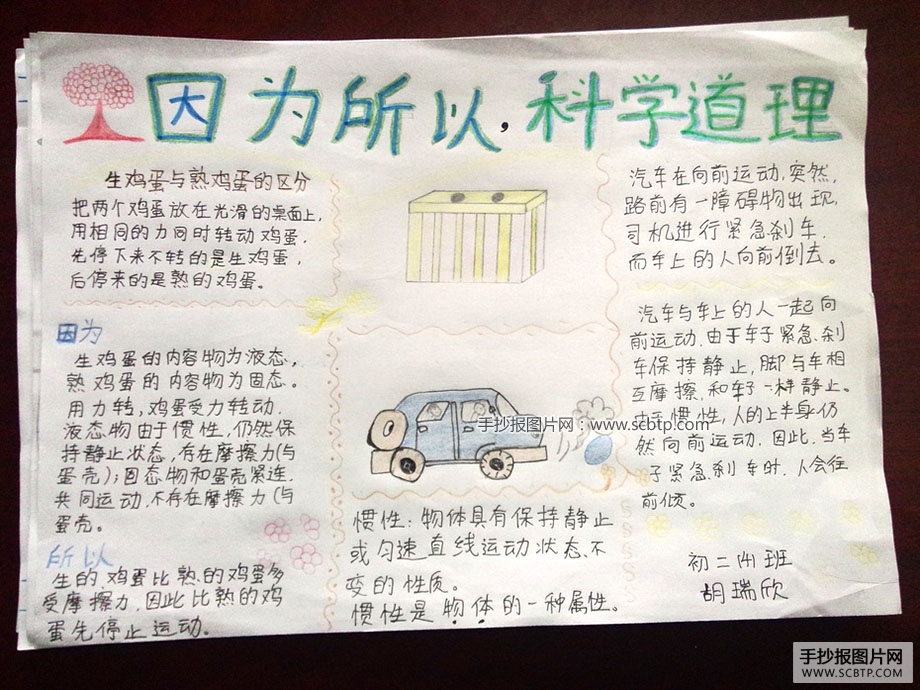 因为所以,科学道理
生鸡蛋与熟鸡蛋的区分
把两个鸡蛋放在光滑的桌面上,
用相同的力同时转动鸡蛋,
先停下来不转的是生鸡蛋,
后停来的是熟的鸡蛋。
因为
生鸡蛋的内容物为液态,
熟鸡蛋的内容物为固态。
用力转,鸡蛋受力转动.
液态物由于惯性,仍然保
持静止状态,存在摩擦力(与
蛋壳);固态物和蛋壳紧连,
共同运动,不存在摩擦力(与
蛋壳。
所以
生的鸡蛋比熟的鸡蛋多
受摩擦力,因此比熟的鸡
蛋先停止运动。
手抄报图片网:www.scbtp.com
惯性:物体具有保持静止
或匀速直线运动状态不
变的性质。
惯性是物体的一种属性。
汽车在向前运动,突然,
路前有一障碍物出现,
司机进行紧急刹车,
而车上的人向前倒去。
汽车与车上的人一起向
前运动,由于车子紧急刹
车保持静止,脚与车相
互摩擦,和车子一样静止。
由于惯性,人的上半身仍
然向前运动。因此,当车
子紧急刹车时,人会往
前倾。
初二(4)班
胡瑞欣
手抄报图片网
WWW.SCBTP.COM